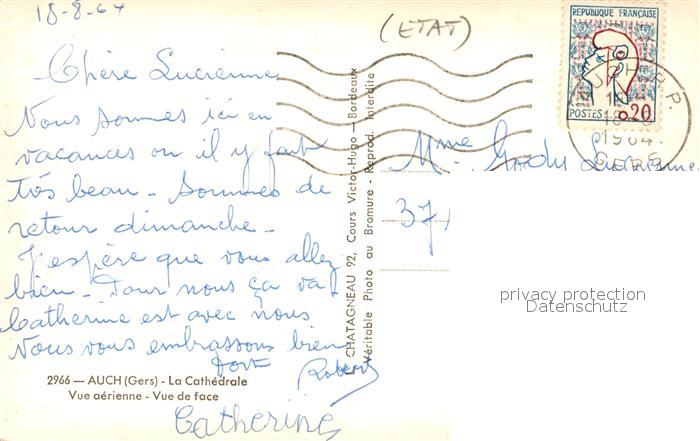 18-8-64
(ETAT)
Chère Lucienne
Nous sommes ici en
vacances ou il y fait
très beau - Sommes de
retour dimanche -
J'espère que vous allez
bien - Pour nous ça va
Catherine est avec nous
Nous vous embrassons bien
fort Robert
Catherine
2966 — AUCH (Gers) - La Cathédrale
Vue aérienne - Vue de face
CHATAGNEAU 92, Cours Victor-Hugo — Bordeaux
Véritable Photo au Bromure - Reprod. Interdite
REPUBLIQUE FRANÇAISE
POSTES 0,20
AUCH R.P.
18
1964
GERS
Mme
37,
privacy protection
Datenschutz